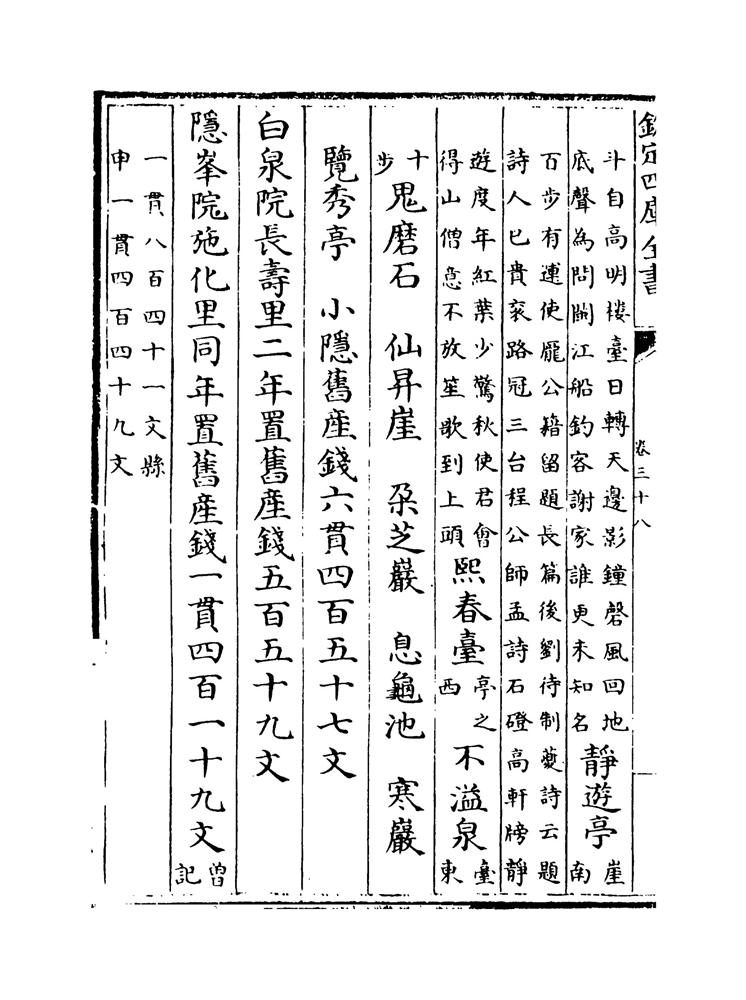 欽定四庫全書
卷三十八
斗自高明樓臺日轉天邊影鐘磬風回地
底聲為問闕江船釣客謝家誰更未知名
靜遊亭
崖
南
百步有運使龎公籍留題長篇後劉待制夔詩云題
詩人已貴衮路冠三台程公師孟詩石磴高軒牓靜
遊度年紅葉少驚秋使君㑹
得山僧意不放笙歌到上頭
熙春臺
亭之
西
不溢泉
臺
東
十
步
鬼磨石 仙昇崖 朶芝巖 息龜池 寒巖
覽秀亭 小隱舊産錢六貫四百五十七文
白泉院長壽里二年置舊産錢五百五十九文
隱峯院施化里同年置舊産錢一貫四百一十九文
曾
記
一貫八百四十一文縣
申一貫四百四十九文